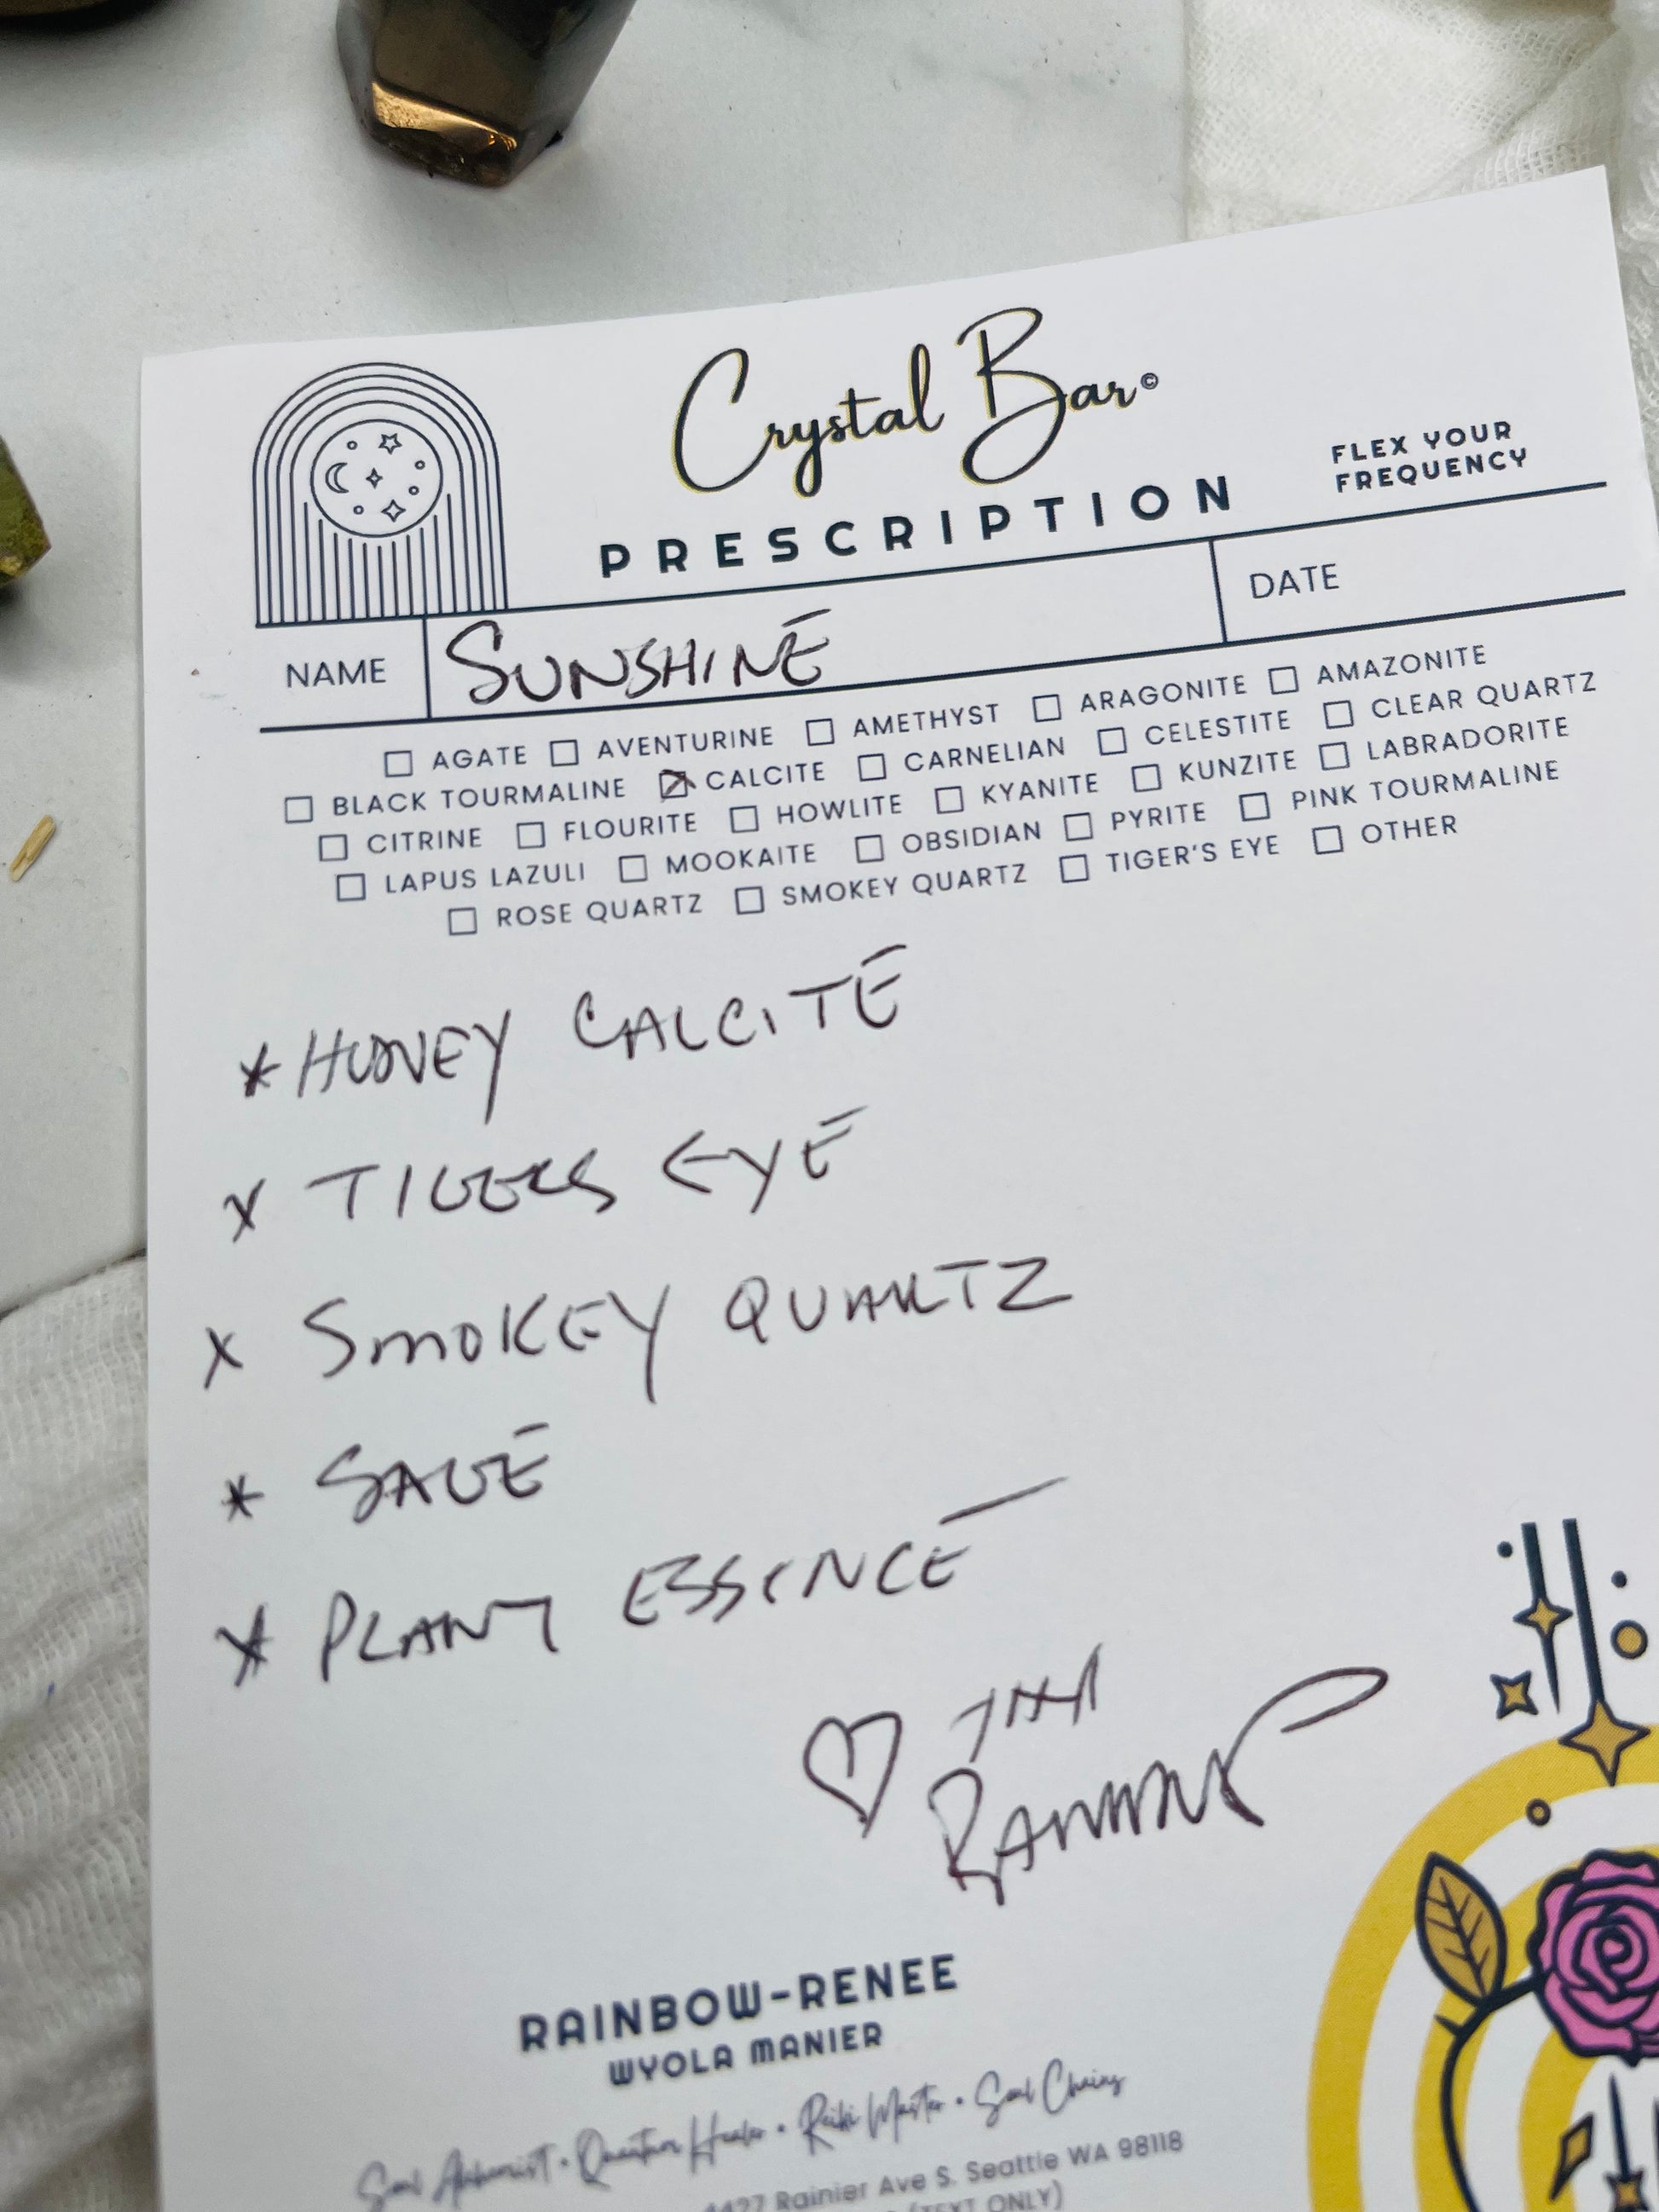 Crystal Bar©
PRESCRIPTION
FLEX YOUR
FREQUENCY
NAME SUNSHINE DATE
AGATE AVENTURINE AMETHYST ARAGONITE AMAZONITE
BLACK TOURMALINE CALCITE CARNELIAN CELESTITE CLEAR QUARTZ
CITRINE FLOURITE HOWLITE KYANITE KUNZITE LABRADORITE
LAPUS LAZULI MOOKAITE OBSIDIAN PYRITE PINK TOURMALINE
ROSE QUARTZ SMOKEY QUARTZ TIGER'S EYE OTHER
* HONEY CALCITE
* TIGERS EYE
* SMOKEY QUARTZ
* SAGE
* PLANT ESSENCE
RAINBOW-RENEE
WYOLA MANIER
Soul Alchemist • Quantum Healer • Reiki Master • Soul
Rainier Ave S. Seattle WA 98118
(TEXT ONLY)